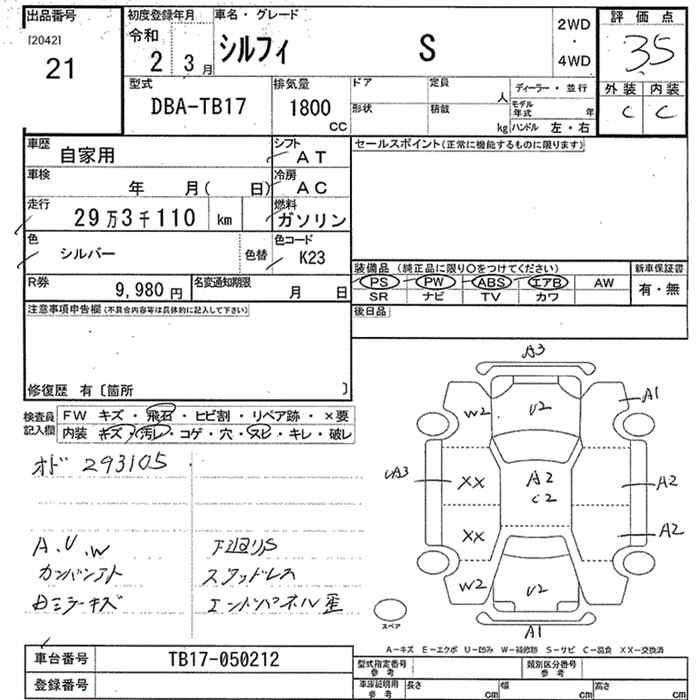 出品番号
[2042]
21
初度登録年月
令和
2 3月
車名・グレード
シルフィ S
2WD
・
4WD
評価点
3.5
外装 内装
C C
型式
DBA-TB17
排気量
1800
CC
ドア
形状
定員
人
積載
kg
ディーラー・並行
モデル年式 年
ハンドル 左・右
車歴
自家用
シフト
AT
車検
年 月( 日)
冷房
AC
走行
29万3千110 km
燃料
ガソリン
色
シルバー
色替
色コード
K23
R券
9,980円
名変通知期限
月 日
セールスポイント(正常に機能するものに限ります)
装備品 (純正品に限り○をつけてください)
PS PW ABS エアB AW
SR ナビ TV カワ
新車保証書
有・無
後日品
注意事項申告欄(不具合内容等は具体的に記入して下さい)
修復歴 有〔箇所 〕
検査員記入欄
FW キズ・飛石・ヒビ割・リペア跡・×要
内装 キズ・汚レ・コゲ・穴・スレ・キレ・破レ
オド 293105
A.U.W
下廻りS
スタッドレス
エンドパネル歪
A3
A1
W2
U2
A3
XX
A2
C2
A2
XX
A2
W2
U2
A1
スペア
A-キズ E-エクボ U-凹み W-補修跡 S-サビ C-腐食 XX-交換済
車台番号
TB17-050212
登録番号
型式指定番号
参考
類別区分番号
参考
車庫証明用
参考
長さ cm
幅 cm
高さ cm